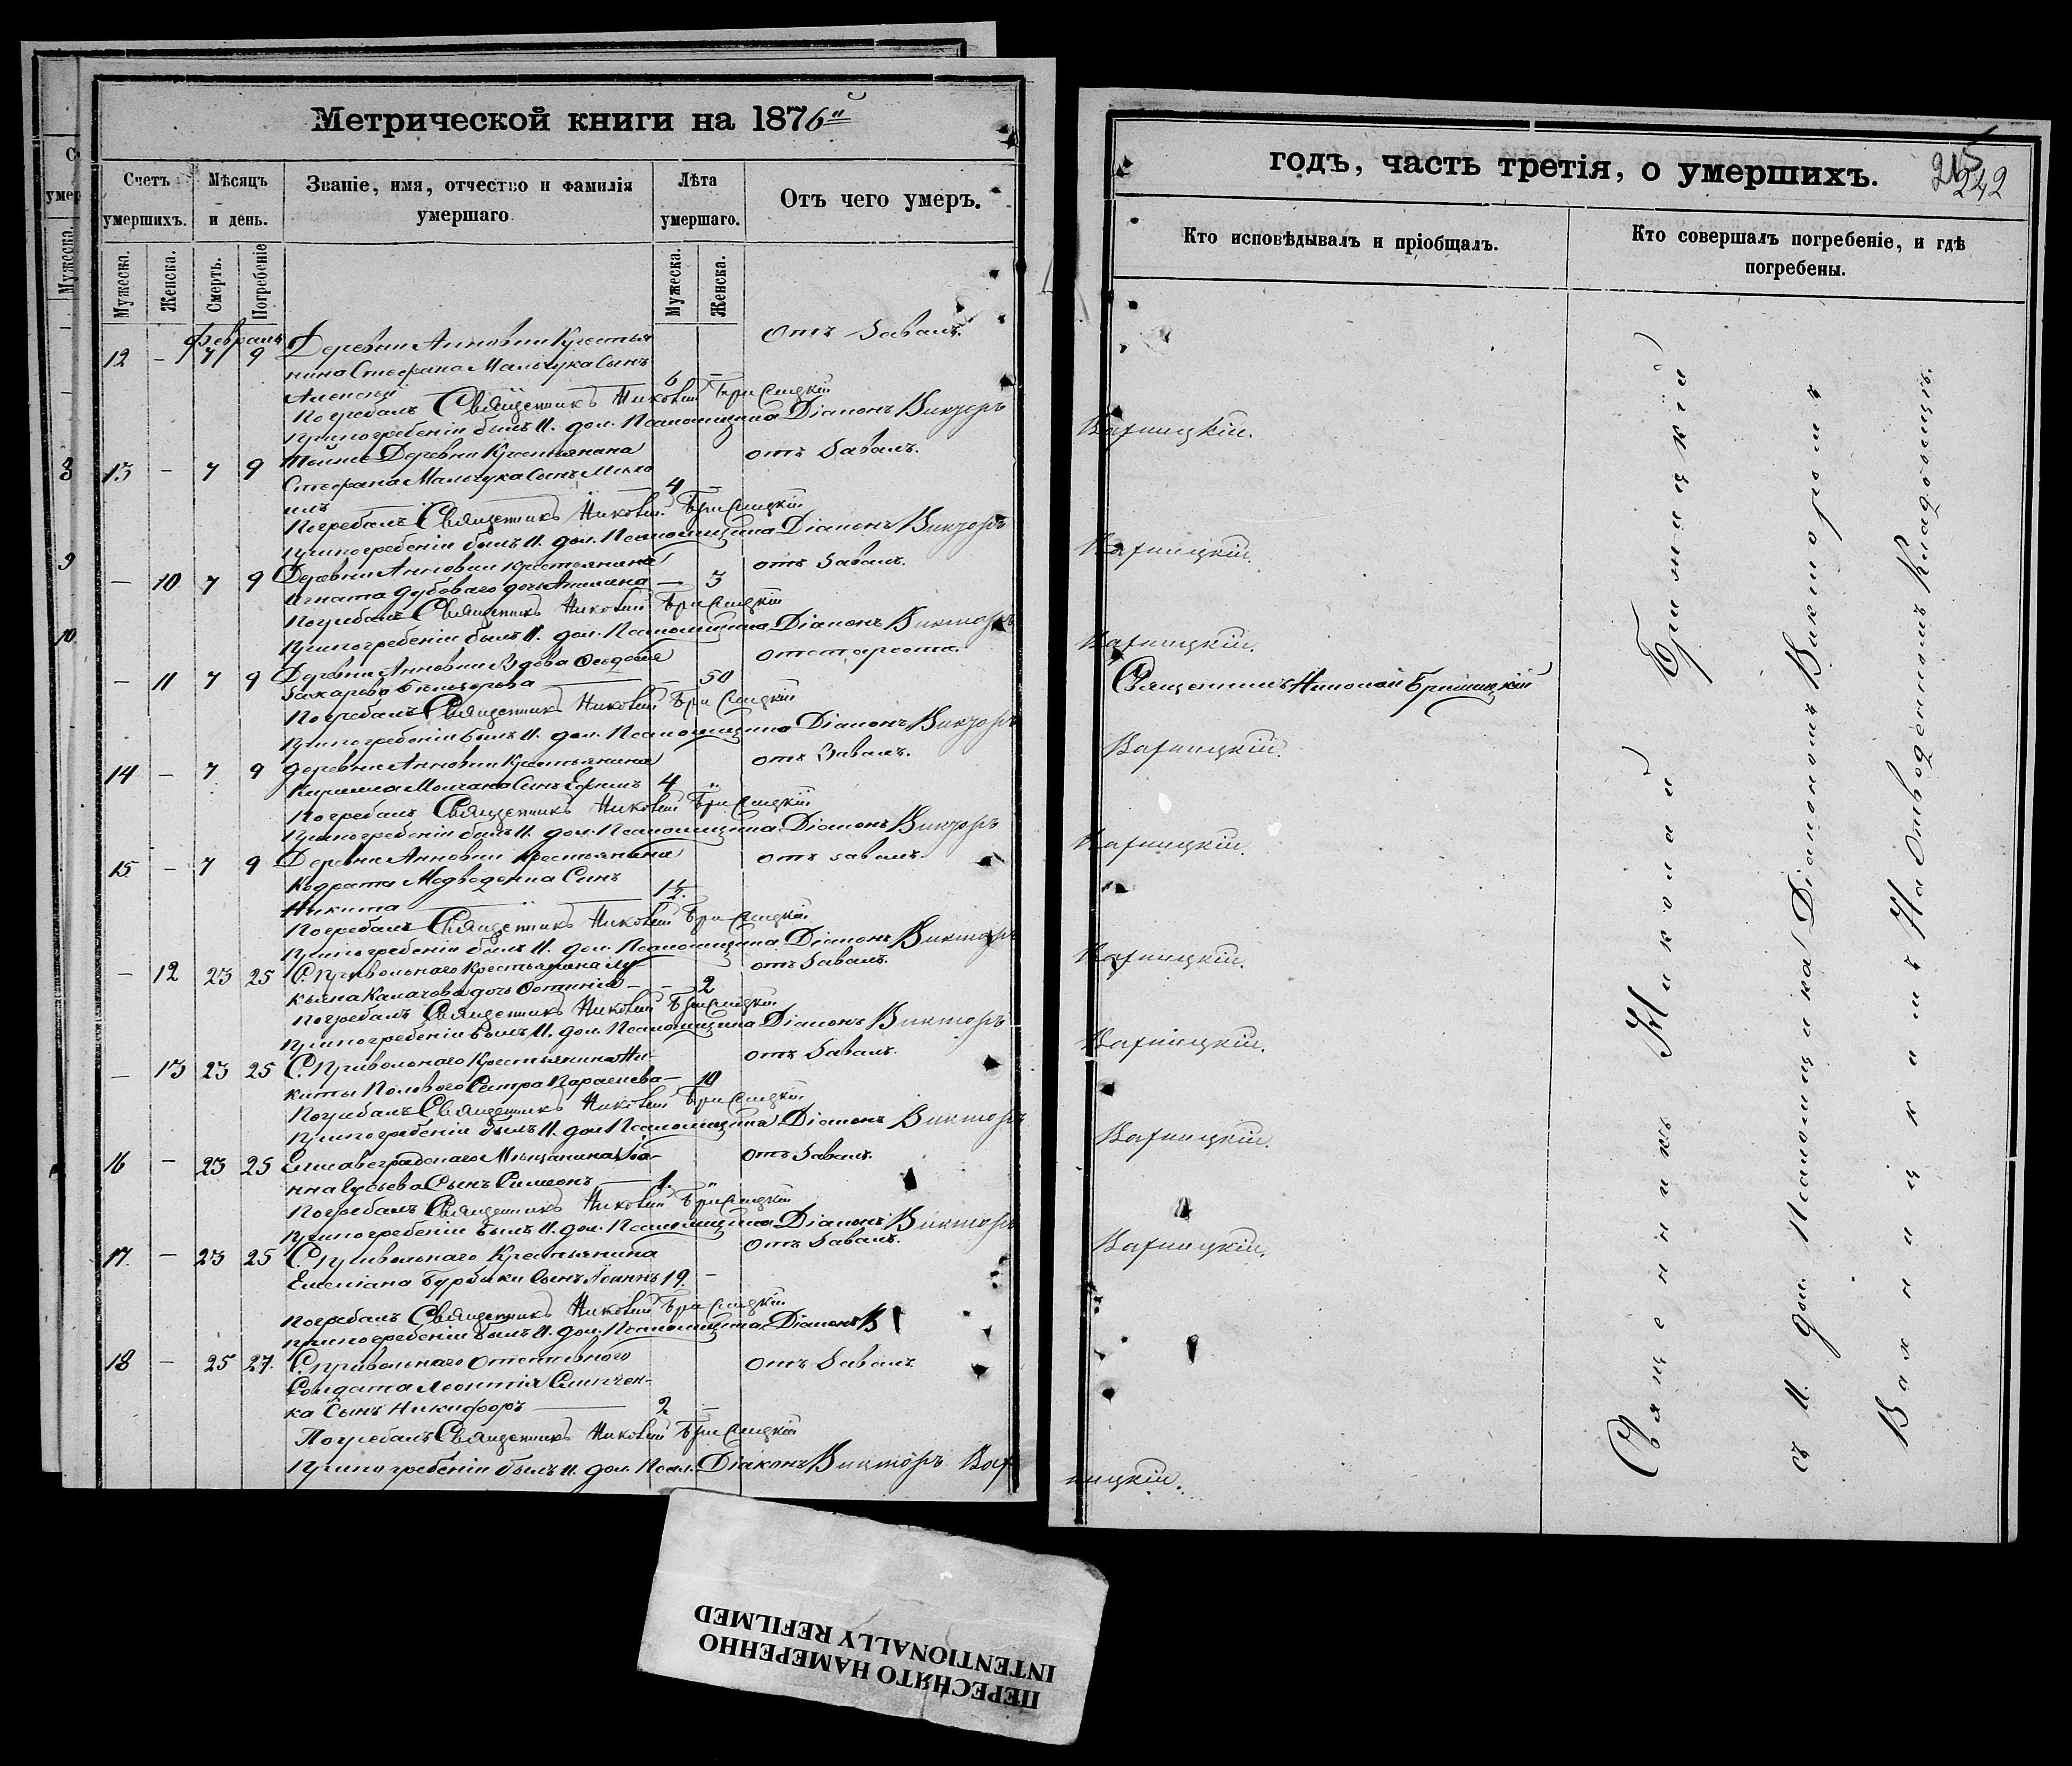 Метрической книги на 1876й
Счетъ умершихъ.
Мѣсяцъ и день.
Званіе, имя, отчество и фамилія умершаго.
Лѣта умершаго.
Отъ чего умеръ.
Мужеска.
Женска.
Смерть.
Погребеніе
Мужеска.
Женска.
Февраль
12 – 7 9 Деревни Анновки Крестья Отъ Завалъ.
нина Стефана Мальчука Сынъ
Алексѣй 6 –
Погребалъ Священникъ Николай Брисицкій
при погребеніи былъ И. дол. Псаломщика Діаконъ Викторъ
13 – 7 9 Тойже Деревни Крестьянина отъ Завалъ.
Стефана Мальчука Сынъ Миха
илъ 4 –
Погребалъ Священникъ Николай Брисицкій
при погребеніи былъ И. дол. Псаломщика Діаконъ Викторъ
– 10 7 9 Деревни Анновки крестьянина отъ Завалъ.
Игната Дубового дочь – 3
Погребалъ Священникъ Николай Брисицкій
при погребеніи былъ И. дол. Псаломщика Діаконъ Викторъ
– 11 7 9 Деревни Анновки Вдова Феодосія отъ старости.
Захарова – 50
Погребалъ Священникъ Николай Брисицкій
при погребеніи былъ И. дол. Псаломщика Діаконъ Викторъ
14 – 7 9 Деревни Анновки Крестьянина отъ Завалъ.
Кирилла Молчана Сынъ 4 „
Погребалъ Священникъ Николай Брисицкій
при погребеніи былъ И. дол. Псаломщика Діаконъ Викторъ
15 – 7 9 Деревни Анновки крестьянина отъ завалъ.
Кодрата Медведенка Сынъ
Никита 1½.
Погребалъ Священникъ Николай Брисицкій
при погребеніи былъ И. дол. Псаломщика Діаконъ Викторъ
– 12 23 25 С. Привольнаго Крестьянина Лу- отъ Завалъ.
кьяна Калачова дочь Фотинія – – 2
Погребалъ Священникъ Николай Брисицкій
при погребеніи былъ И. дол. Псаломщика Діаконъ Викторъ
– 13 23 25 С. Привольнаго Крестьянина Ни- отъ Завалъ.
киты Полового Сестра Параскева – 10
Погребалъ Священникъ Николай Брисицкій
при погребеніи былъ И. дол. Псаломщика Діаконъ Викторъ
16 – 23 25 Елисаветградскаго Мѣщанина Іоа- отъ Завалъ.
нна Гусьева Сынъ Симеонъ 1. „
Погребалъ Священникъ Николай Брисицкій
при погребеніи былъ И. дол. Псаломщика Діаконъ Викторъ
17. – 23 25 С. Привольнаго Крестьянина Отъ Завалъ.
Емеліана Бурбыки Сынъ Іоаннъ 19. –
погребалъ Священникъ Николай Брисицкій
при погребеніи былъ И. дол. Псаломщика Діаконъ В
18 – 25 27. С. привольнаго Отставного Отъ Завалъ
Солдата Леонтія Слипчен-
ка Сынъ Никифоръ 2 –
Погребалъ Священникъ Николай Брисицкій
При погребеніи былъ И. дол. Псал. Діаконъ Викторъ Вах
годъ, часть третія, о умершихъ.
215
242
Кто исповѣдывалъ и пріобщалъ.
Кто совершалъ погребеніе, и гдѣ погребены.
Вахницкій.
Вахницкій.
Вахницкій.
Священникъ Николай Брисицкій
Вахницкій.
Вахницкій.
Вахницкій.
Вахницкій.
Вахницкій.
Вахницкій.
ницкій.
Священникъ Николай Брисицкій
съ И. дол. Псаломщика Діакономъ Викторомъ
Вахницкимъ На Отводенномъ Кладбищѣ.
ПЕРЕСНЯТО НАМЕРЕННО
INTENTIONALLY REFILMED